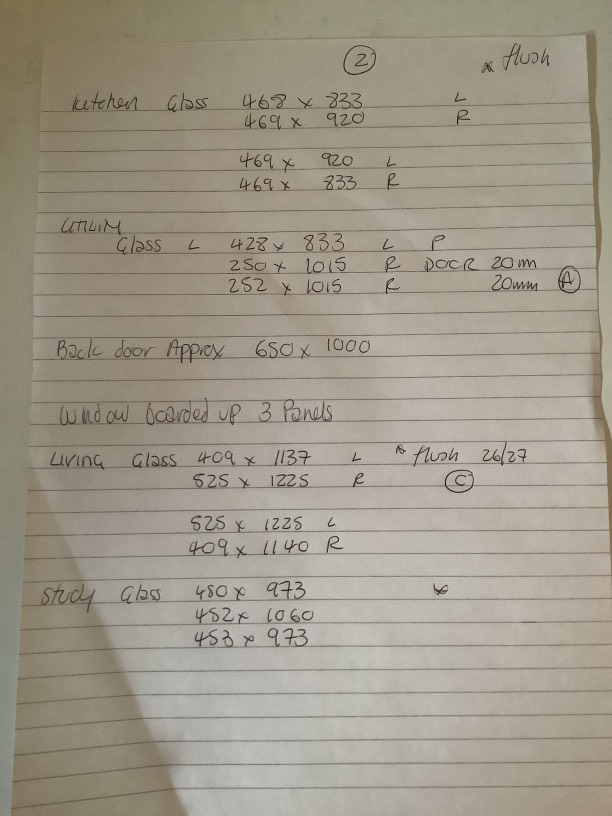 2
* flush
Kitchen Glass 468 x 833 L
469 x 920 R
469 x 920 L
469 x 833 R
UTILITY
Glass L 428 x 833 L P
250 x 1015 R DOOR 20mm
252 x 1015 R 20mm A
Back door Approx 650 x 1000
Window boarded up 3 Panels
Living Glass 409 x 1137 L * flush 26/27
525 x 1225 R C
525 x 1225 L
409 x 1140 R
Study Glass 450 x 973 *
452 x 1060
453 x 973